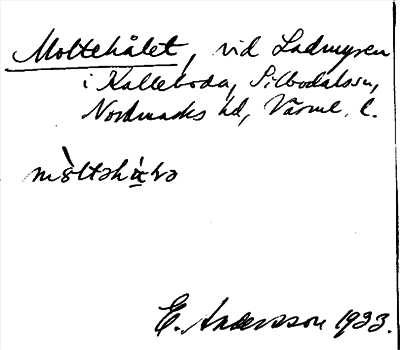 Moltehålet, vid Ladmyren
i Kalleboda, Silbodalssn,
Nordmarks hd, Värml. l.
E. Andersson 1933.